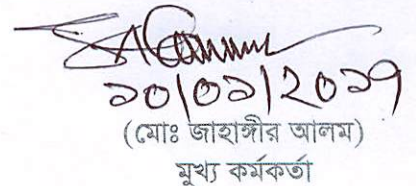 ১০/০১/২০১৭
(মোঃ জাহাঙ্গীর আলম)
মুখ্য কর্মকর্তা